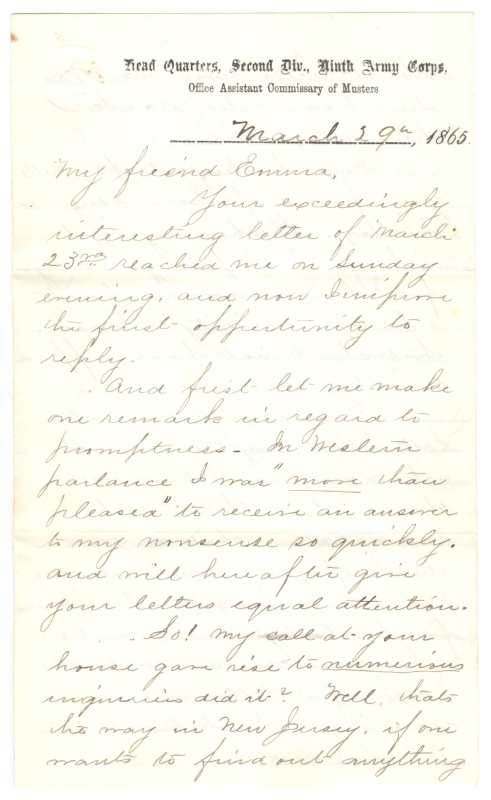 Head Quarters, Second Div., Ninth Army Corps,
Office Assistant Commissary of Musters
March 29th, 1865.
My friend Emma,
Your exceedingly
interesting letter of March
23rd reached me on Sunday
evening, and now I improve
the first opportunity to
reply.
And first let me make
one remark in regard to
promptness - In Western
parlance I was "more than
pleased" to receive an answer
to my nonsense so quickly.
and will hereafter give
your letters equal attention.
So! my call at your
house gave rise to numerious
inquiries did it? Well, thats
the way in New Jersey, if one
wants to find out anything